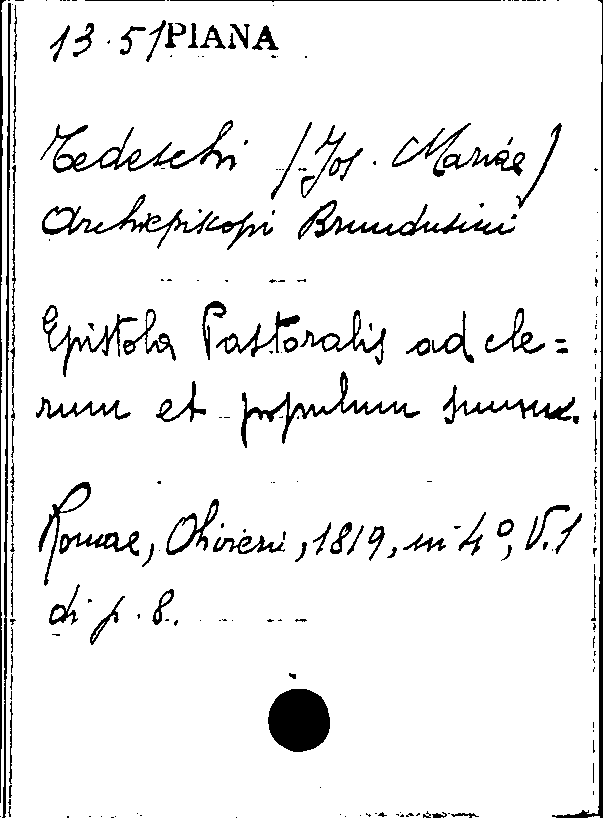 13.51 PIANA
Tedeschi (Jos. Mariae)
Archiepiscopi Brundusini
Epistola Pastoralis ad cle=
rum et populum suum.
Romae, Olivieri, 1819, in 4º, V. 1
di p. 8.